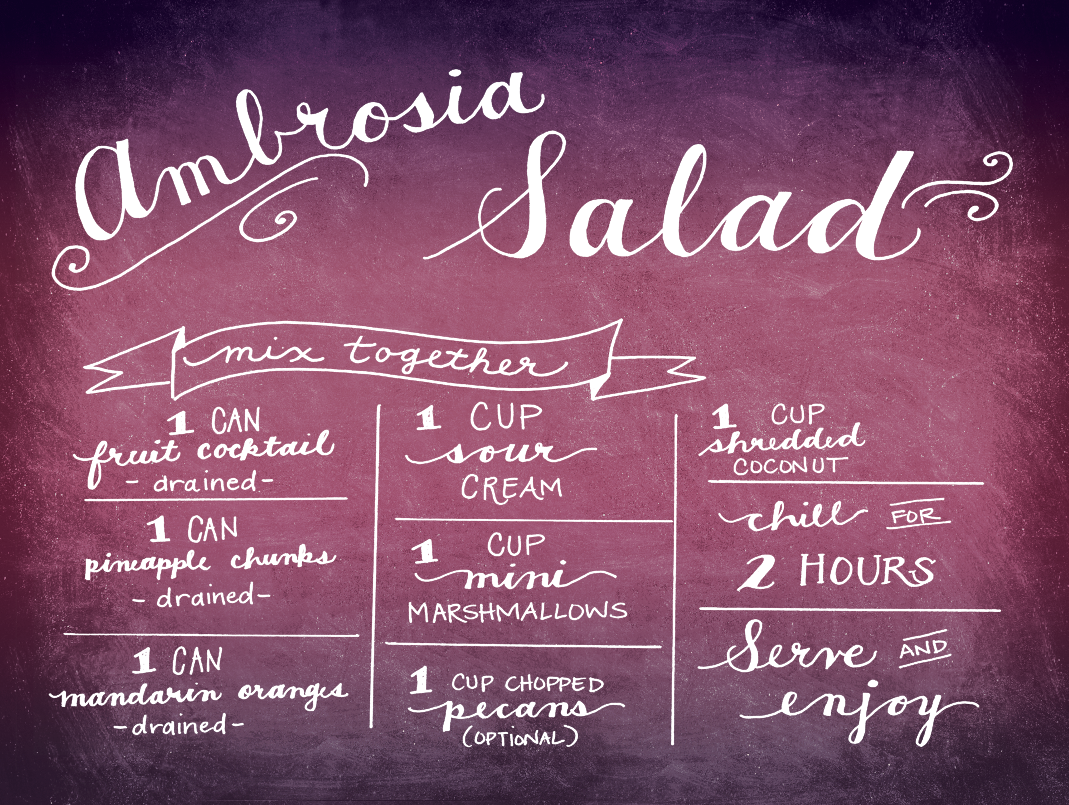 Ambrosia
Salad
mix together
1 CAN
fruit cocktail
- drained -
1 CAN
pineapple chunks
- drained -
1 CAN
mandarin oranges
- drained -
1 CUP
sour
CREAM
1 CUP
mini
MARSHMALLOWS
1 CUP CHOPPED
pecans
(OPTIONAL)
1 CUP
shredded
COCONUT
chill FOR
2 HOURS
Serve AND
enjoy